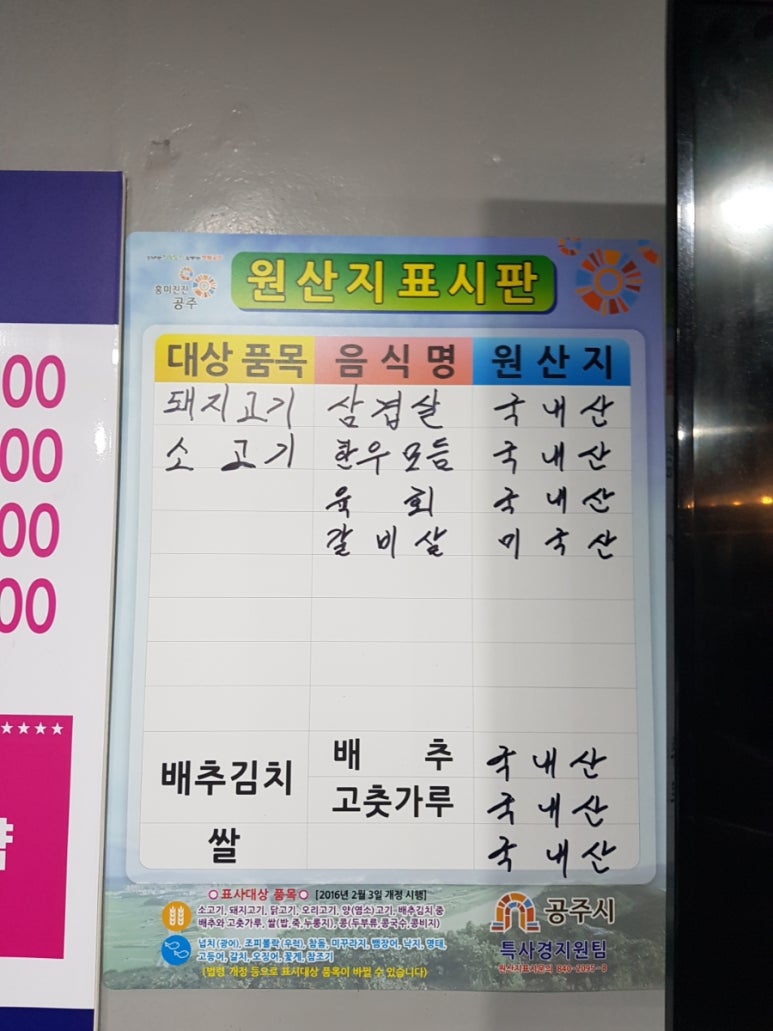 흥미진진
공주
원산지표시판
대상 품목 음식명 원산지
돼지고기 삼겹살 국내산
소고기 한우모듬 국내산
육회 국내산
갈비살 미국산
배추김치 배추 국내산
고춧가루 국내산
쌀 국내산
표시대상 품목 [2016년 2월 3일 개정 시행]
소고기, 돼지고기, 닭고기, 오리고기, 양(염소)고기, 배추김치 중
배추와 고춧가루, 쌀(밥,죽,누룽지), 콩(두부류,콩국수,콩비지)
넙치(광어), 조피볼락(우럭), 참돔, 미꾸라지, 뱀장어, 낙지, 명태,
고등어, 갈치, 오징어, 꽃게, 참조기
(법령 개정 등으로 표시대상 품목이 바뀔 수 있습니다)
공주시
특사경지원팀
원산지표시문의 840-2095~8
00
00
00
00